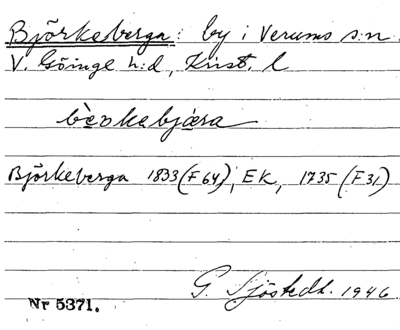 Björkeberga: by i Verums s:n
V. Göinge h:d, Krist. l
bèrkebjæra
Björkeberga 1833 (F 64), EK, 1735 (F 31)
G. Sjöstedt. 1946
Nr 5371.